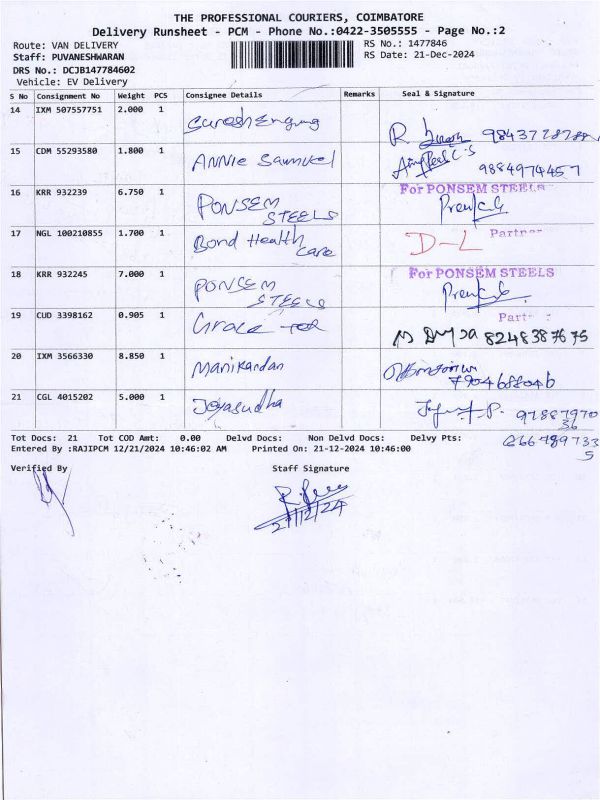 THE PROFESSIONAL COURIERS, COIMBATORE
Delivery Runsheet - PCM - Phone No.:0422-3505555 - Page No.:2
Route: VAN DELIVERY RS No.: 1477846
Staff: PUVANESHWARAN RS Date: 21-Dec-2024
DRS No.: DCJB147784602
Vehicle: EV Delivery
S No Consignment No Weight PCS Consignee Details Remarks Seal & Signature
14 IXM 507557751 2.000 1
15 CDM 55293580 1.800 1 Annie 9884974457
16 KRR 932239 6.750 1 PONSEM STEELS For PONSEM STEELS
Partner
17 NGL 100210855 1.700 1 Bond Health care D-L
18 KRR 932245 7.000 1 PONSEM STEELS For PONSEM STEELS
Partner
19 CUD 3398162 0.905 1 Grace 8248387675
20 IXM 3566330 8.850 1 Manikandan
21 CGL 4015202 5.000 1 Jeyasudha 9788797036
Tot Docs: 21 Tot COD Amt: 0.00 Delvd Docs: Non Delvd Docs: Delvy Pts:
Entered By :RAJIPCM 12/21/2024 10:46:02 AM Printed On: 21-12-2024 10:46:00
Verified By Staff Signature
21/12/24